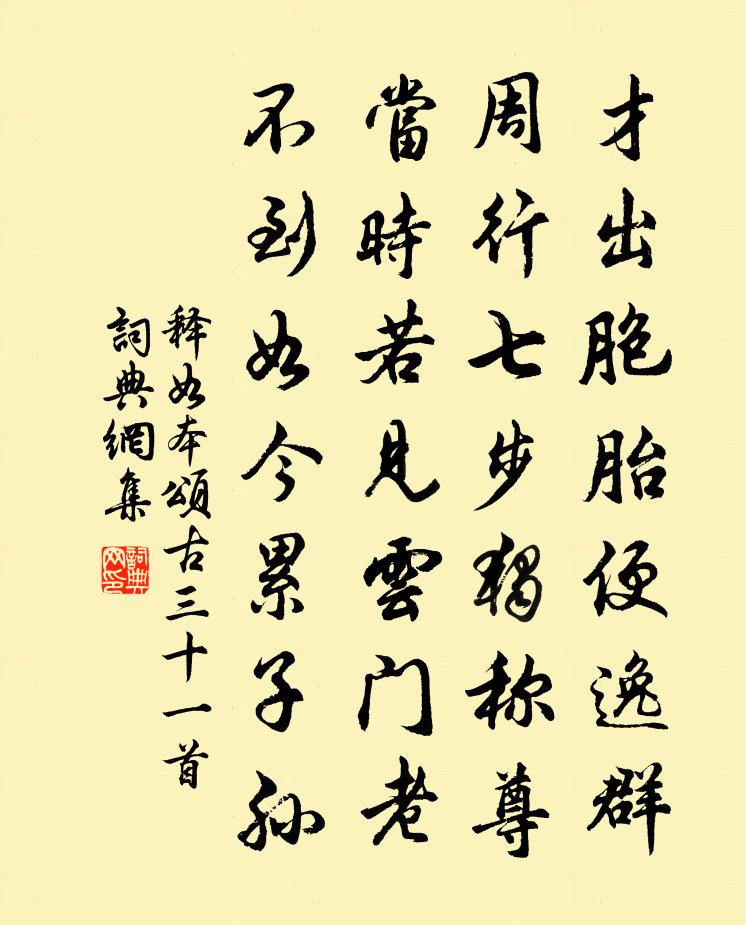 才出胞胎便逸群
周行七步獨称尊
當時若見雲门老
不到如今累子孙
释如本頌古三十一首
詞典網集
詞典网印